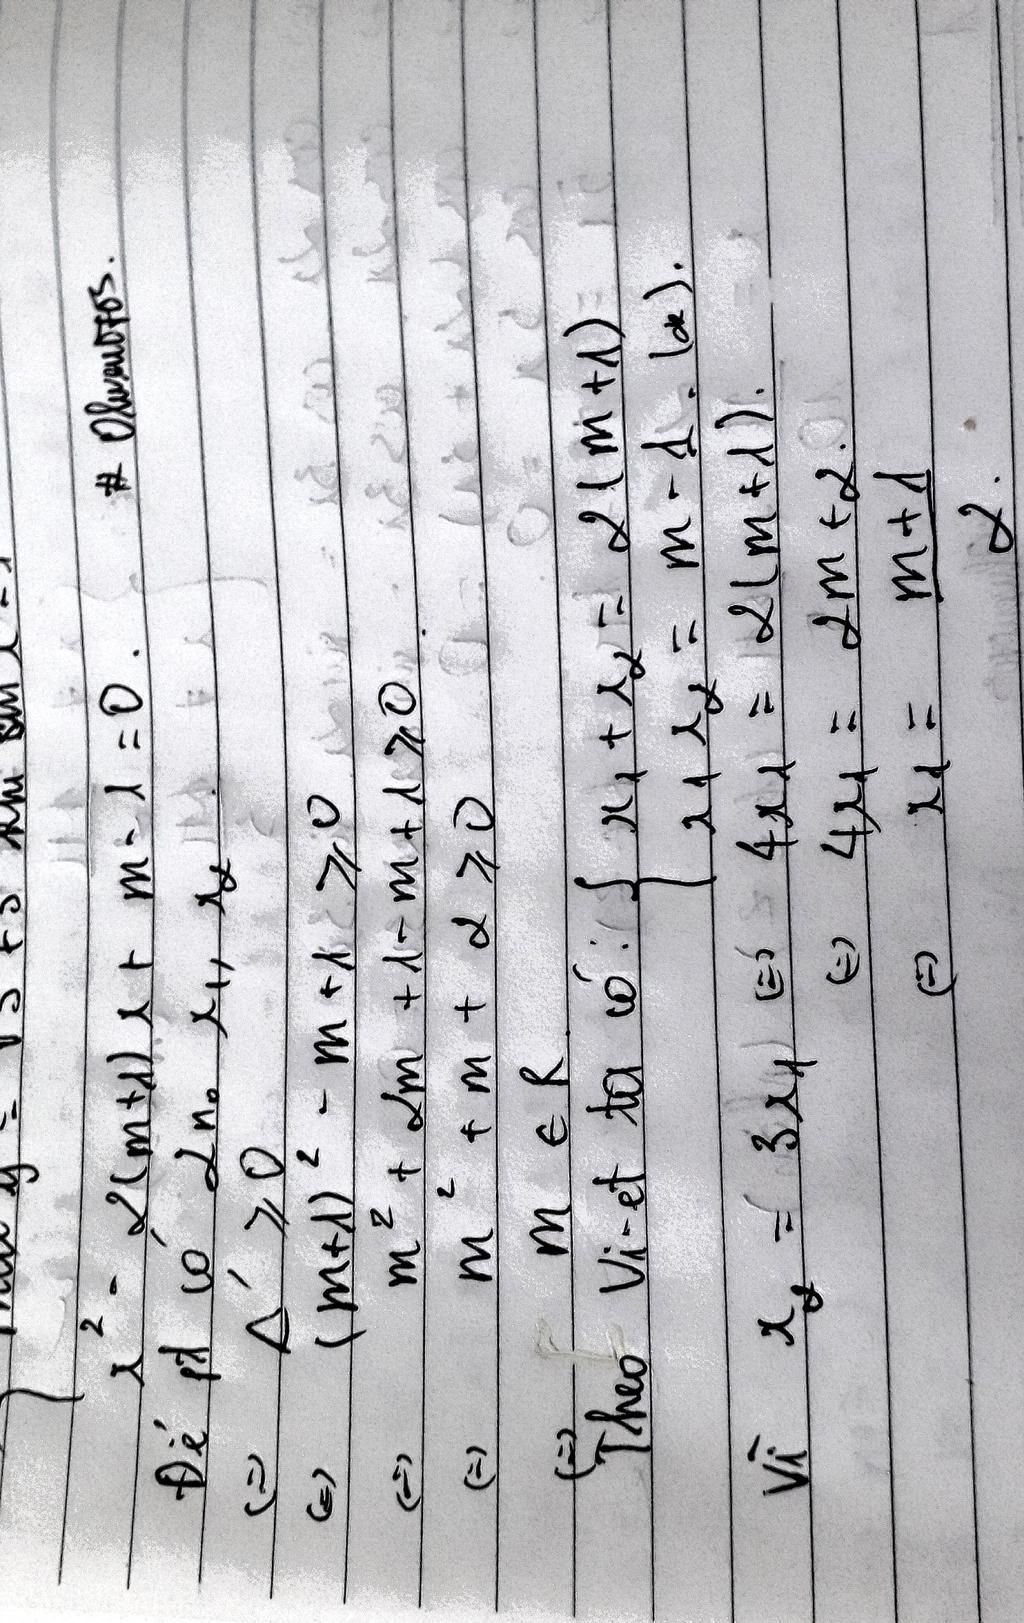 x² - 2(m+1)x + m-1 = 0. # Olwen0703.
Để pt có 2 n₀ x₁, x₂
(=) Δ' ⩾ 0
(=) (m+1)² - m+1 ⩾ 0
(=) m² + 2m + 1 - m + 1 ⩾ 0
(=) m² + m + 2 ⩾ 0
(=) m ∈ R
Theo Vi-et ta có: { x₁ + x₂ = 2(m+1)
x₁x₂ = m - 1. (*).
Vì x₂ = 3x₁ (=) 4x₁ = 2(m+1).
(=) 4x₁ = 2m+2.
(=) x₁ = m+1
2.